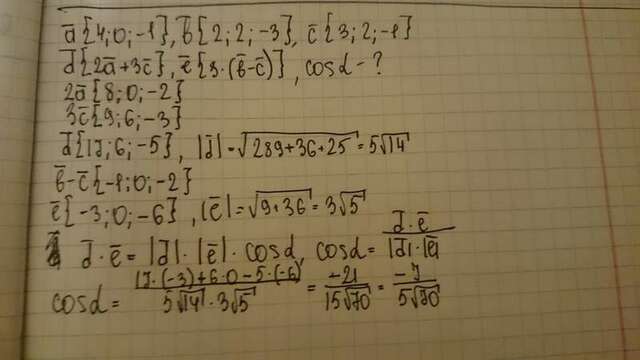 ā{4;0;-1}, b̄{2;2;-3}, c̄{3;2;-1}
d̄{2ā+3c̄}, ē{3·(b̄-c̄)}, cosα-?
2ā{8;0;-2}
3c̄{9;6;-3}
d̄{17;6;-5}, |d̄|=√289+36+25=5√14
b̄-c̄{-1;0;-2}
ē{-3;0;-6}, |ē|=√9+36=3√5
d̄·ē=|d̄|·|ē|·cosα, cosα=d̄·ē/|d̄|·|ē|
cosα=17·(-3)+6·0-5·(-6)/5√14·3√5=-21/15√70=-7/5√70